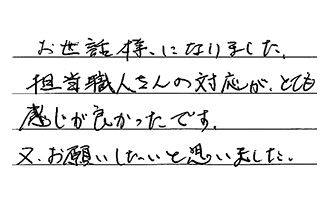 お世話様になりました。
担当職人さんの対応が、とても
感じが良かったです。
又、お願いしたいと思いました。